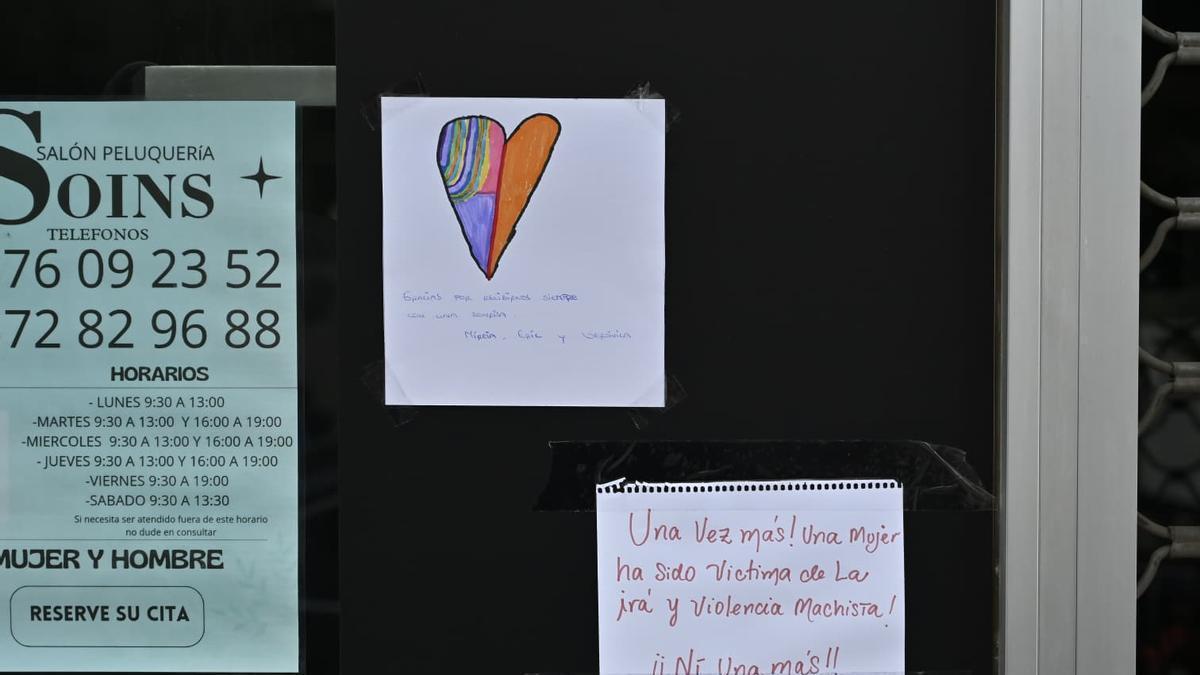 SALÓN PELUQUERíA
SOINS
TELEFONOS
76 09 23 52
72 82 96 88
HORARIOS
- LUNES 9:30 A 13:00
-MARTES 9:30 A 13:00 Y 16:00 A 19:00
-MIERCOLES 9:30 A 13:00 Y 16:00 A 19:00
- JUEVES 9:30 A 13:00 Y 16:00 A 19:00
-VIERNES 9:30 A 19:00
-SABADO 9:30 A 13:30
Si necesita ser atendido fuera de este horario
no dude en consultar
MUJER Y HOMBRE
RESERVE SU CITA
GRACIAS POR RECIBIRNOS SIEMPRE
CON UNA SONRISA.
MIREIA, ERIC Y VERÓNICA
Una Vez más! Una Mujer
ha sido Victima de La
irá y Violencia Machista!
¡¡Ni Una más!!